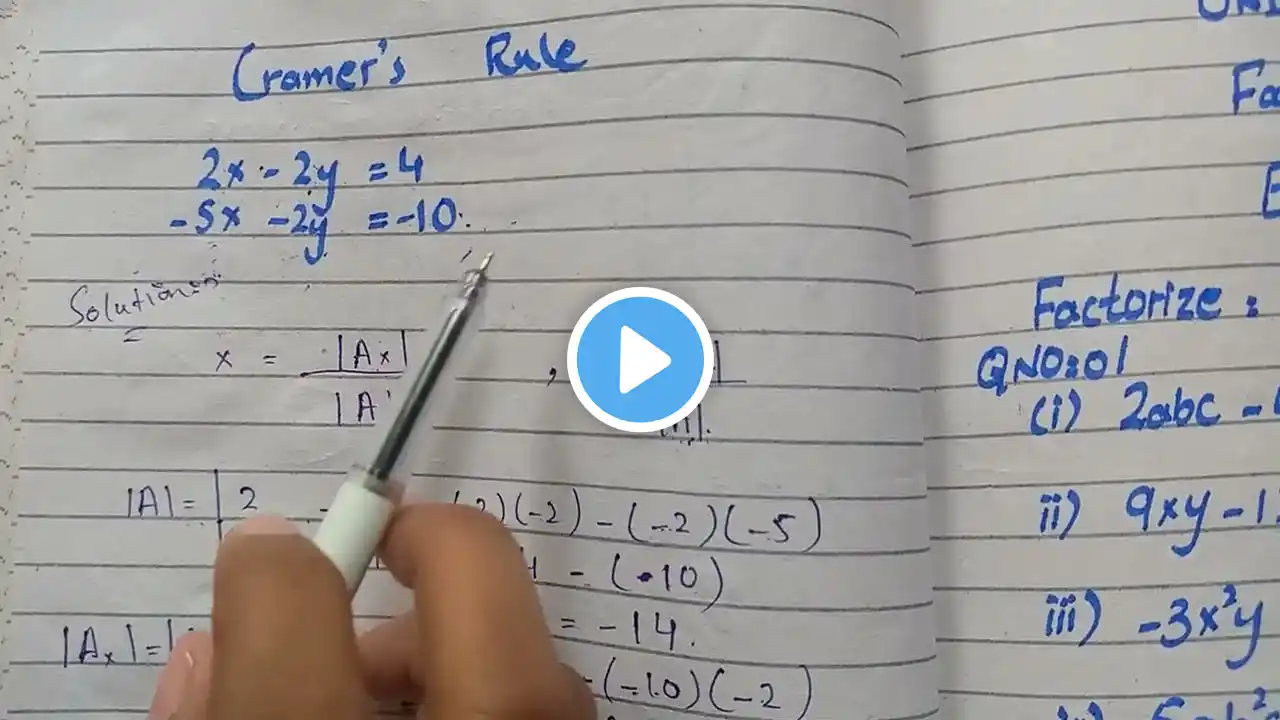 Cramer's Rule
2x - 2y = 4
-5x - 2y = -10.
Solution:
x = |Ax|
|A
,
|A| = | 2
2)(-2) - (-2)(-5)
- (10)
= -14.
|Ax| = |
(-10)(-2)
Factorize:
QNO:01
(i) 2abc -
ii) 9xy - 1
iii) -3x²y